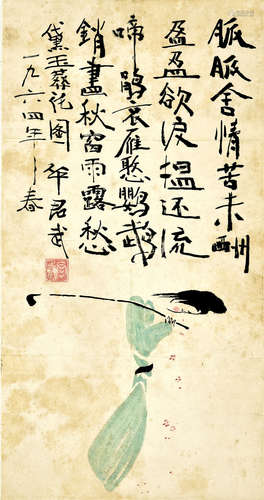 脈脈含情苦未酬
盈盈欲淚揾还流
啼鹃哀雁憨鹦鹉
銷盡秋窗雨露愁
黛玉葬花图
一九六四年之春